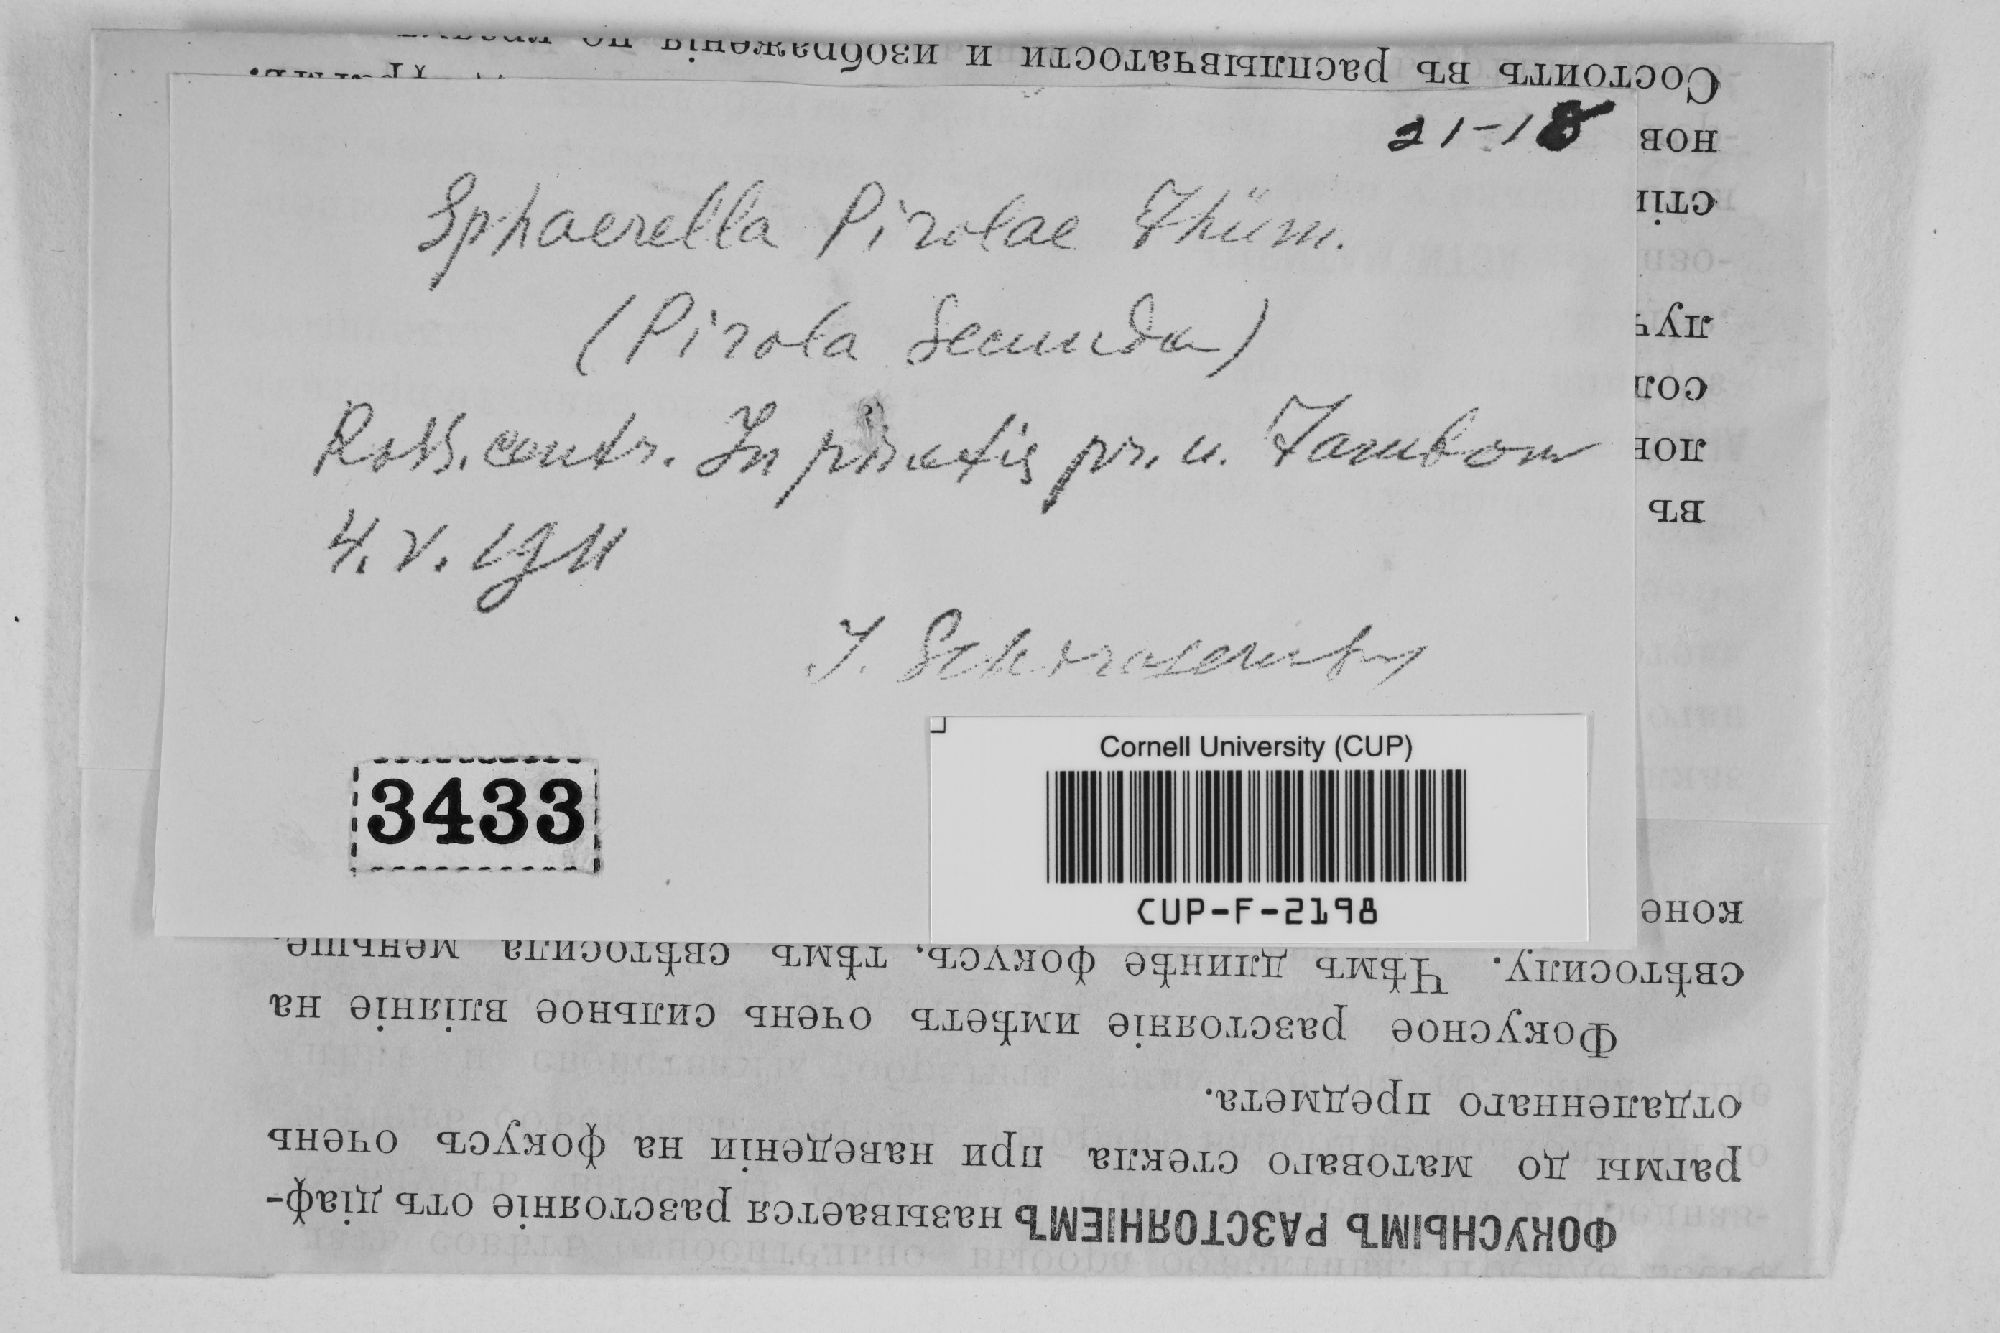 21-18
Sphaerella Pirolae Thüm.
(Pirola secunda)
Ross. centr. In pinetis pr. u. Tambow
4. V. 1911
3433
Cornell University (CUP)
CUP-F-2198
ФОКУСНЫМЪ РАЗСТОЯНІЕМЪ называется разстояніе отъ діаф-
рагмы до матоваго стекла при наведеніи на фокусъ очень
отдаленнаго предмета.
Фокусное разстояніе имѣетъ очень сильное вліяніе на
свѣтосилу. Чѣмъ длиннѣе фокусъ, тѣмъ свѣтосила меньше.
коне
въ
лон
сол
луч
стін
нов
Состоитъ въ расплывчатости и изображенія по